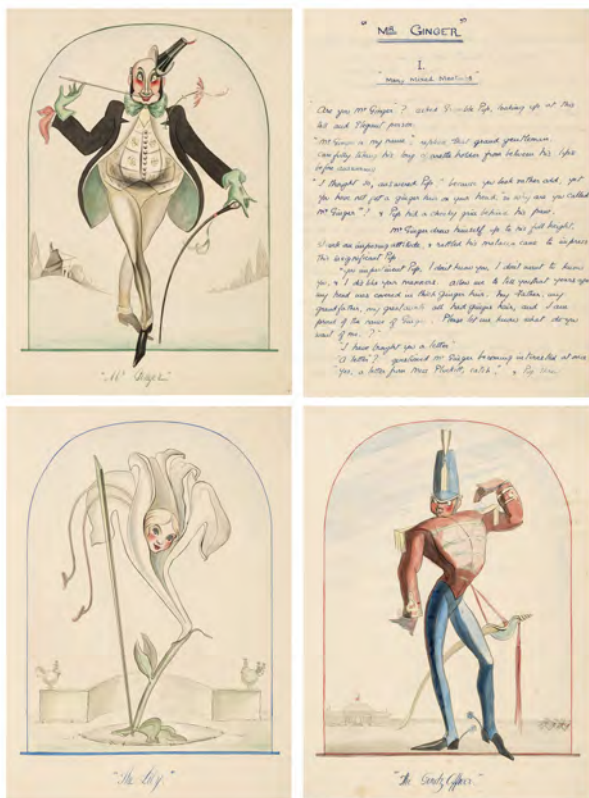 "Mr Ginger"
"Mr GINGER"
I.
"Many Mixed
Are you Mr Ginger? asked Pip, looking up at this
tall and Elegant person.
"Mr Ginger is my name", replied that grand gentleman,
carefully taking his long holder from between his lips
before answering
"I thought so, answered Pip," because you look rather odd, yet
you have not got a ginger hair on your head, so why are you called
Mr Ginger"? & Pip hid a cheeky grin behind his
Mr Ginger drew himself up to his full height,
struck an imposing attitude, & rattled his malacca cane to impress
this insignificant Pip
"you impertinent Pip, I don't know you, I don't want to know
you, & I dislike your manners. allow me to tell you that years ago
my head was covered in thick Ginger hair. My father, my
grandfather, my great all had ginger hair, and I am
proud of the name of Ginger. Please let me know what do you
want of me.?"
"I have brought you a letter"
"A letter"? questioned Mr Ginger becoming interested at once
"yes, a letter from Miss catch," & Pip
"The Lily."
"The Officer"